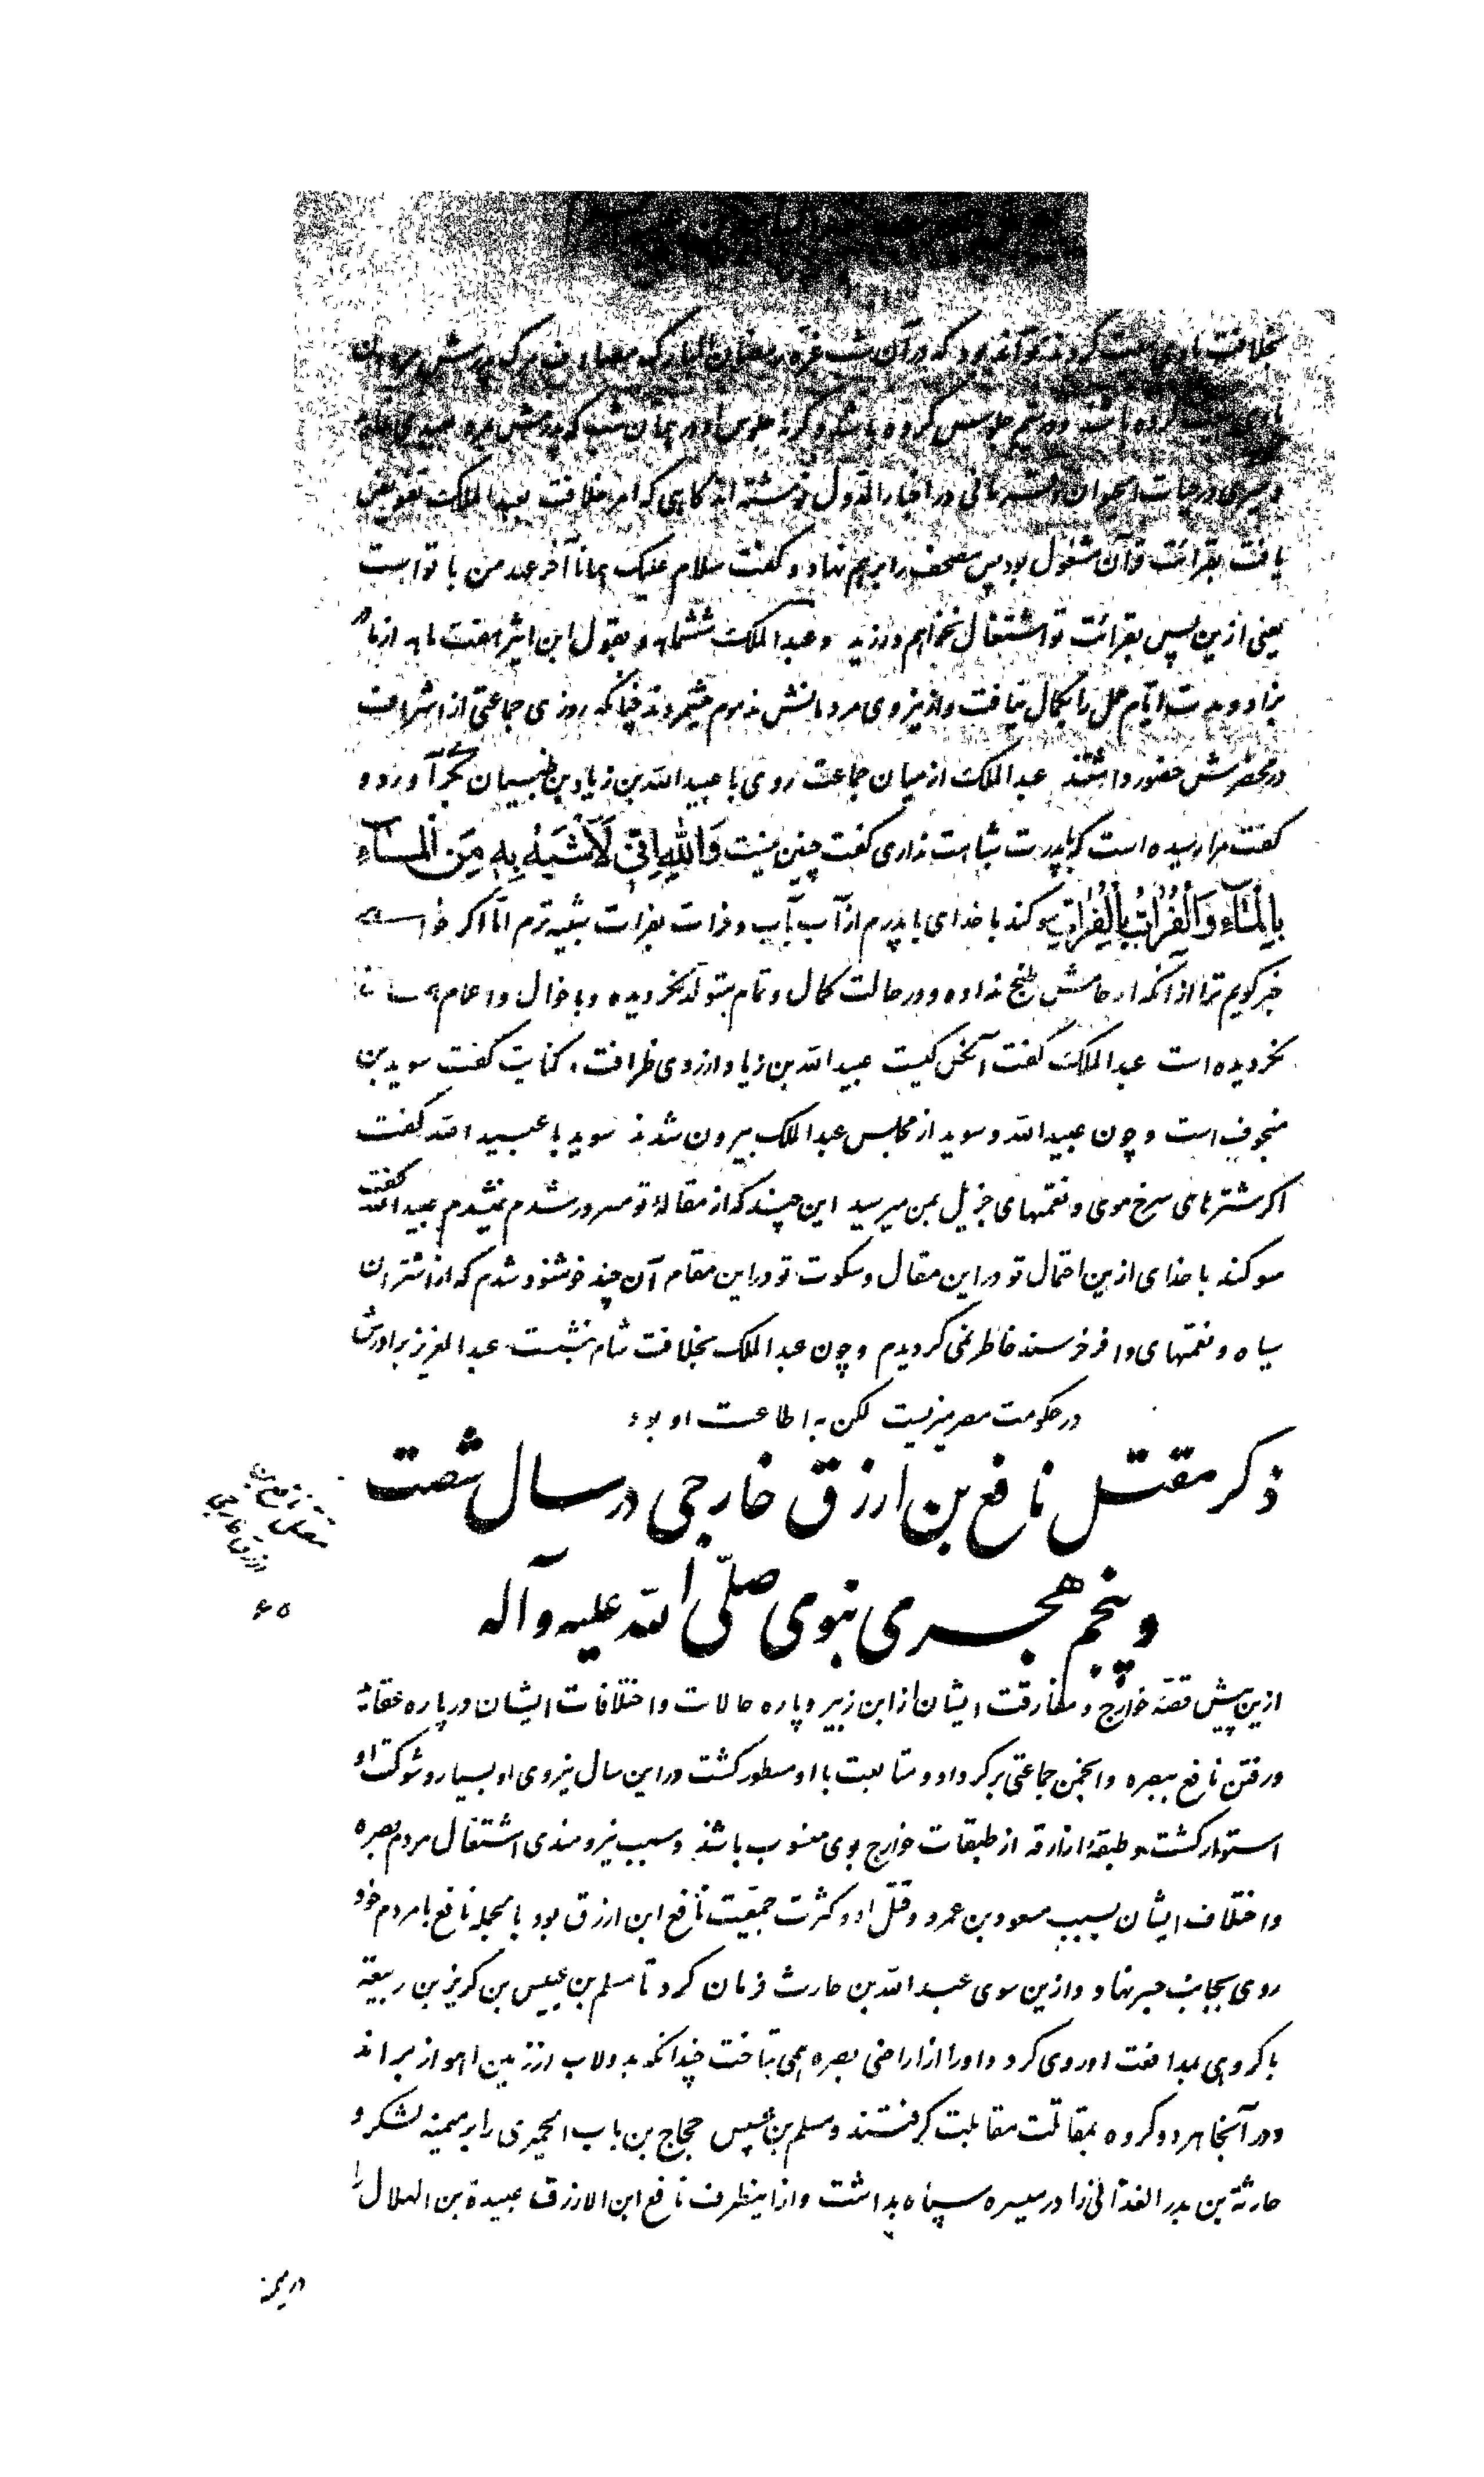 بخلافت با وی بیعت کردند تواند بود که در آن شب غره رمضان المبارک
کرده باشند و کرنه جلوس او در همان شب که پدرش بمرد
و میری در حیات الحیوان و قرمانی در اخبار الدول نوشته اند کاهی که امر خلافت بعبد الملک تفویض
یافت بقرائت قرآن مشغول بود پس مصحف را بر هم نهاد و گفت سلام علیک همانا آخر عهد من با تو است
یعنی ازین پس بقرائت تو اشتغال نخواهم ورزید وعبد الملک ششماهه و بقول ابن اثیر هفت ماهه از مادر
بزاد و مدت ایام حمل را بکمال نیافت و ازین روی مردمانش مذموم میشمردند چنانکه روزی جماعتی از اشراف
در محضرش حضور داشتند عبد الملک از میان جماعت روی با عبید الله بن زیاد بن ظبیان بکری آورد و
گفت مرا رسیده است که با پدرت شباهت نداری گفت چنین نیست وَاللهِ اِنّی لَاَشْبَهُ بِهِ مِنَ الْمَاءِ
بِالْمَاءِ وَالْفُرَاتِ بِالْفُرَاتِ سوگند با خدای با پدرم از آب بآب و فرات بفرات شبیه ترم اما اگر خواسته
خبر گویم ترا از آنکه ارحامش طبخ نداده و در حالت کمال و تمام متولد نگردیده و باخوال و اعمام همسان
نگردیده است عبد الملک گفت آنکس کیست عبید الله بن زیاد از روی ظرافت و کنایت گفت سوید بن
منجوف است و چون عبید الله و سوید از مجلس عبد الملک بیرون شدند سوید با عبید الله گفت
اگر شترهای سرخ موی و نعمتهای جزیل بمن میرسید این چند که از مقاله تو مسرور شدم نمیشدم عبید الله گفت
سوگند با خدای ازین احتمال تو در این مقال و سکوت تو در این مقام آن چند خوشنود شدم که از اشتران
سیاه و نعمتهای وافر خرسند خاطر نمی گردیدم و چون عبد الملک بخلافت شام بنشست عبد العزیز برادرش
در حکومت مصر میزیست لکن به اطاعت او بود
ذکر مقتل نافع بن ارزق خارجی در سال شصت
و پنجم هجری نبوی صلّی الله علیه و آله
مقتل نافع بن
ازرق خارجی
۶۵
ازین پیش قصه خوارج و مفارقت ایشان از ابن زبیر و پاره حالات و اختلافات ایشان در پاره عقائد
و رفتن نافع ببصره و انجمن جماعتی بر گرد او و متابعت با او مسطور گشت در این سال نیروی او بسیار و شوکت او
استوار گشت و طبقه ازارقه از طبقات خوارج بوی منسوب باشند و سبب نیرومندی اشتغال مردم بصره
و اختلاف ایشان بسبب مسعود بن عمرو و قتل او و کثرت جمعیت نافع ابن ارزق بود بالجمله نافع با مردم خود
روی بجانب جسر نهاد و ازین سوی عبد الله بن حارث فرمان کرد تا مسلم بن عبیس بن کریز بن ربیعة
با گروهی بمدافعت او روی کرد و او را از اراضی بصره همی بتاخت چندانکه بدولاب از زمین اهواز براند
و در آنجا هر دو گروه بمقاتلت مقابلت گرفتند و مسلم بن عبیس حجاج بن باب الحمیری را بر میمنه لشکر و
حارثة بن بدر الغدانی را در میسره سپاه بداشت و از اینطرف نافع ابن الازرق عبیدة بن الهلال را
در میمنه